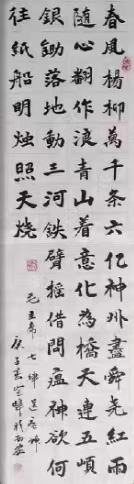 春風楊柳萬千条六亿神州盡舜尧紅雨
隨心翻作浪青山着意化為橋天連五嶺
銀鋤落地動三河鉄臂摇借問瘟神欲何
往紙船明烛照天烧
毛主席七律送瘟神
庚子